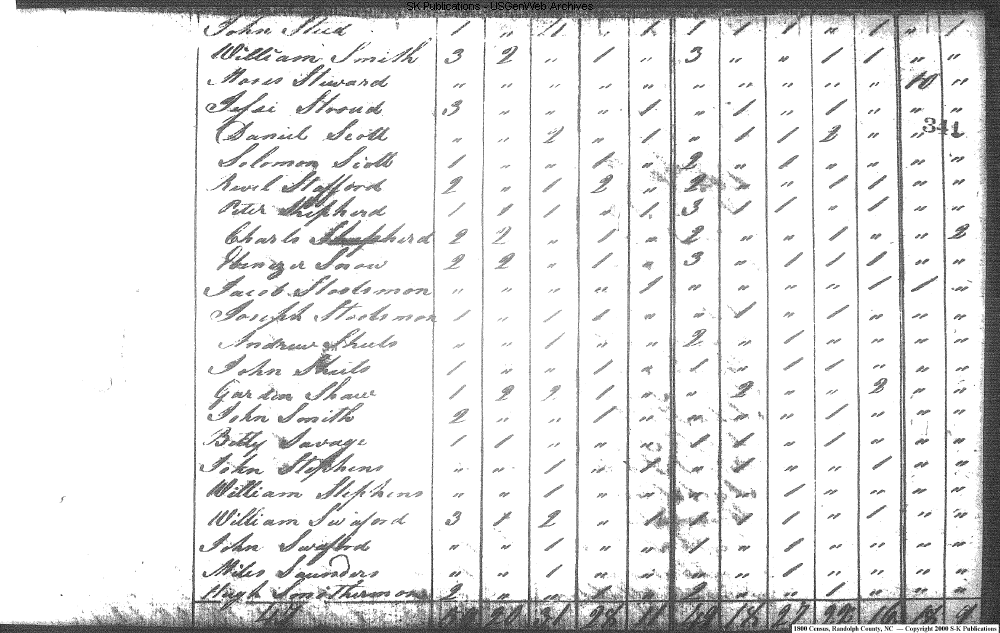 SK Publications - USGenWeb Archives
John Stud 1 " 11 " 1 1 1 1 " 1 " 1
William Smith 3 2 " 1 " 3 " " 1 1 " "
Moses Steward " " " " " " " " " " 10 "
Jessi Stroud 3 " " " 1 " 1 " 1 " " "
341
Daniel Scott " " 2 " 1 " 1 1 2 " "
Solomon Scott 1 " " 1 " 2 " 1 " " " "
Stafford 2 " 1 2 " 2 " " 1 1 " "
Peter Shepherd 1 1 1 " 1 3 1 1 " 1 " "
Charls Shepherd 2 2 " 1 " 2 " " 1 " " 2
Ebenezer Snow 2 2 " 1 " 3 " 1 1 1 " "
Jacob Stootsmon " " " " 1 " " " " 1 1 "
Joseph Stootsmon 1 " 1 1 " " 1 " 1 " " "
Andrew Shiels " " 1 " " 2 " 1 " " " "
John Shiels 1 " " 1 " 1 " 1 1 " " "
Gardon Shaw 1 2 2 1 " " 2 " " 2 " "
John Smith 2 " " 1 " " " " 1 " " "
Betty Savage 1 1 " " " 1 1 " 1 " " "
John Stephens " " 1 " 1 " 1 " " 1 " "
William Stephens " " 1 " " " " 1 " " " "
William Swaford 3 1 2 " 1 1 1 1 " 1 " "
John Swafford " " 1 " " 1 " 1 " " " "
Miles Saunders " " 1 " " " " 1 " " " "
Hugh Smotherman 2 " " 1 " 2 " " 1 " " "
20 31 28 11 18 27 16 18 9
1800 Census, Randolph County, NC — Copyright 2000 S-K Publications